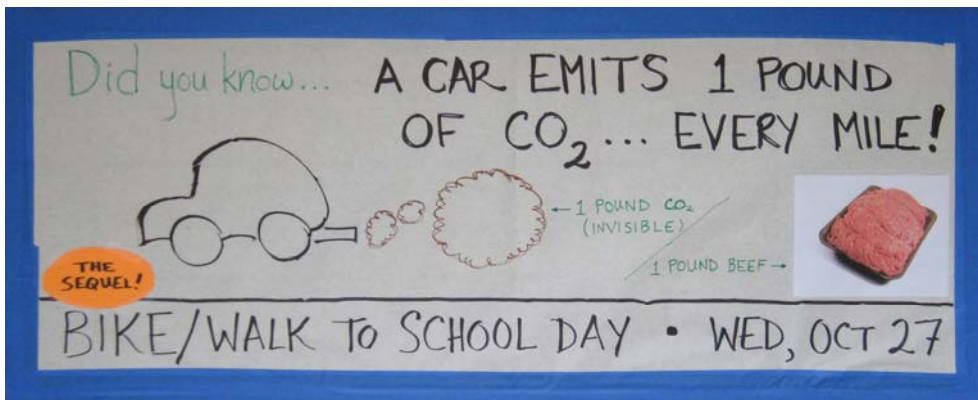 Did you know... A CAR EMITS 1 POUND
OF CO₂... EVERY MILE!
← 1 POUND CO₂
(INVISIBLE)
1 POUND BEEF →
THE
SEQUEL!
BIKE/WALK TO SCHOOL DAY • WED, OCT 27